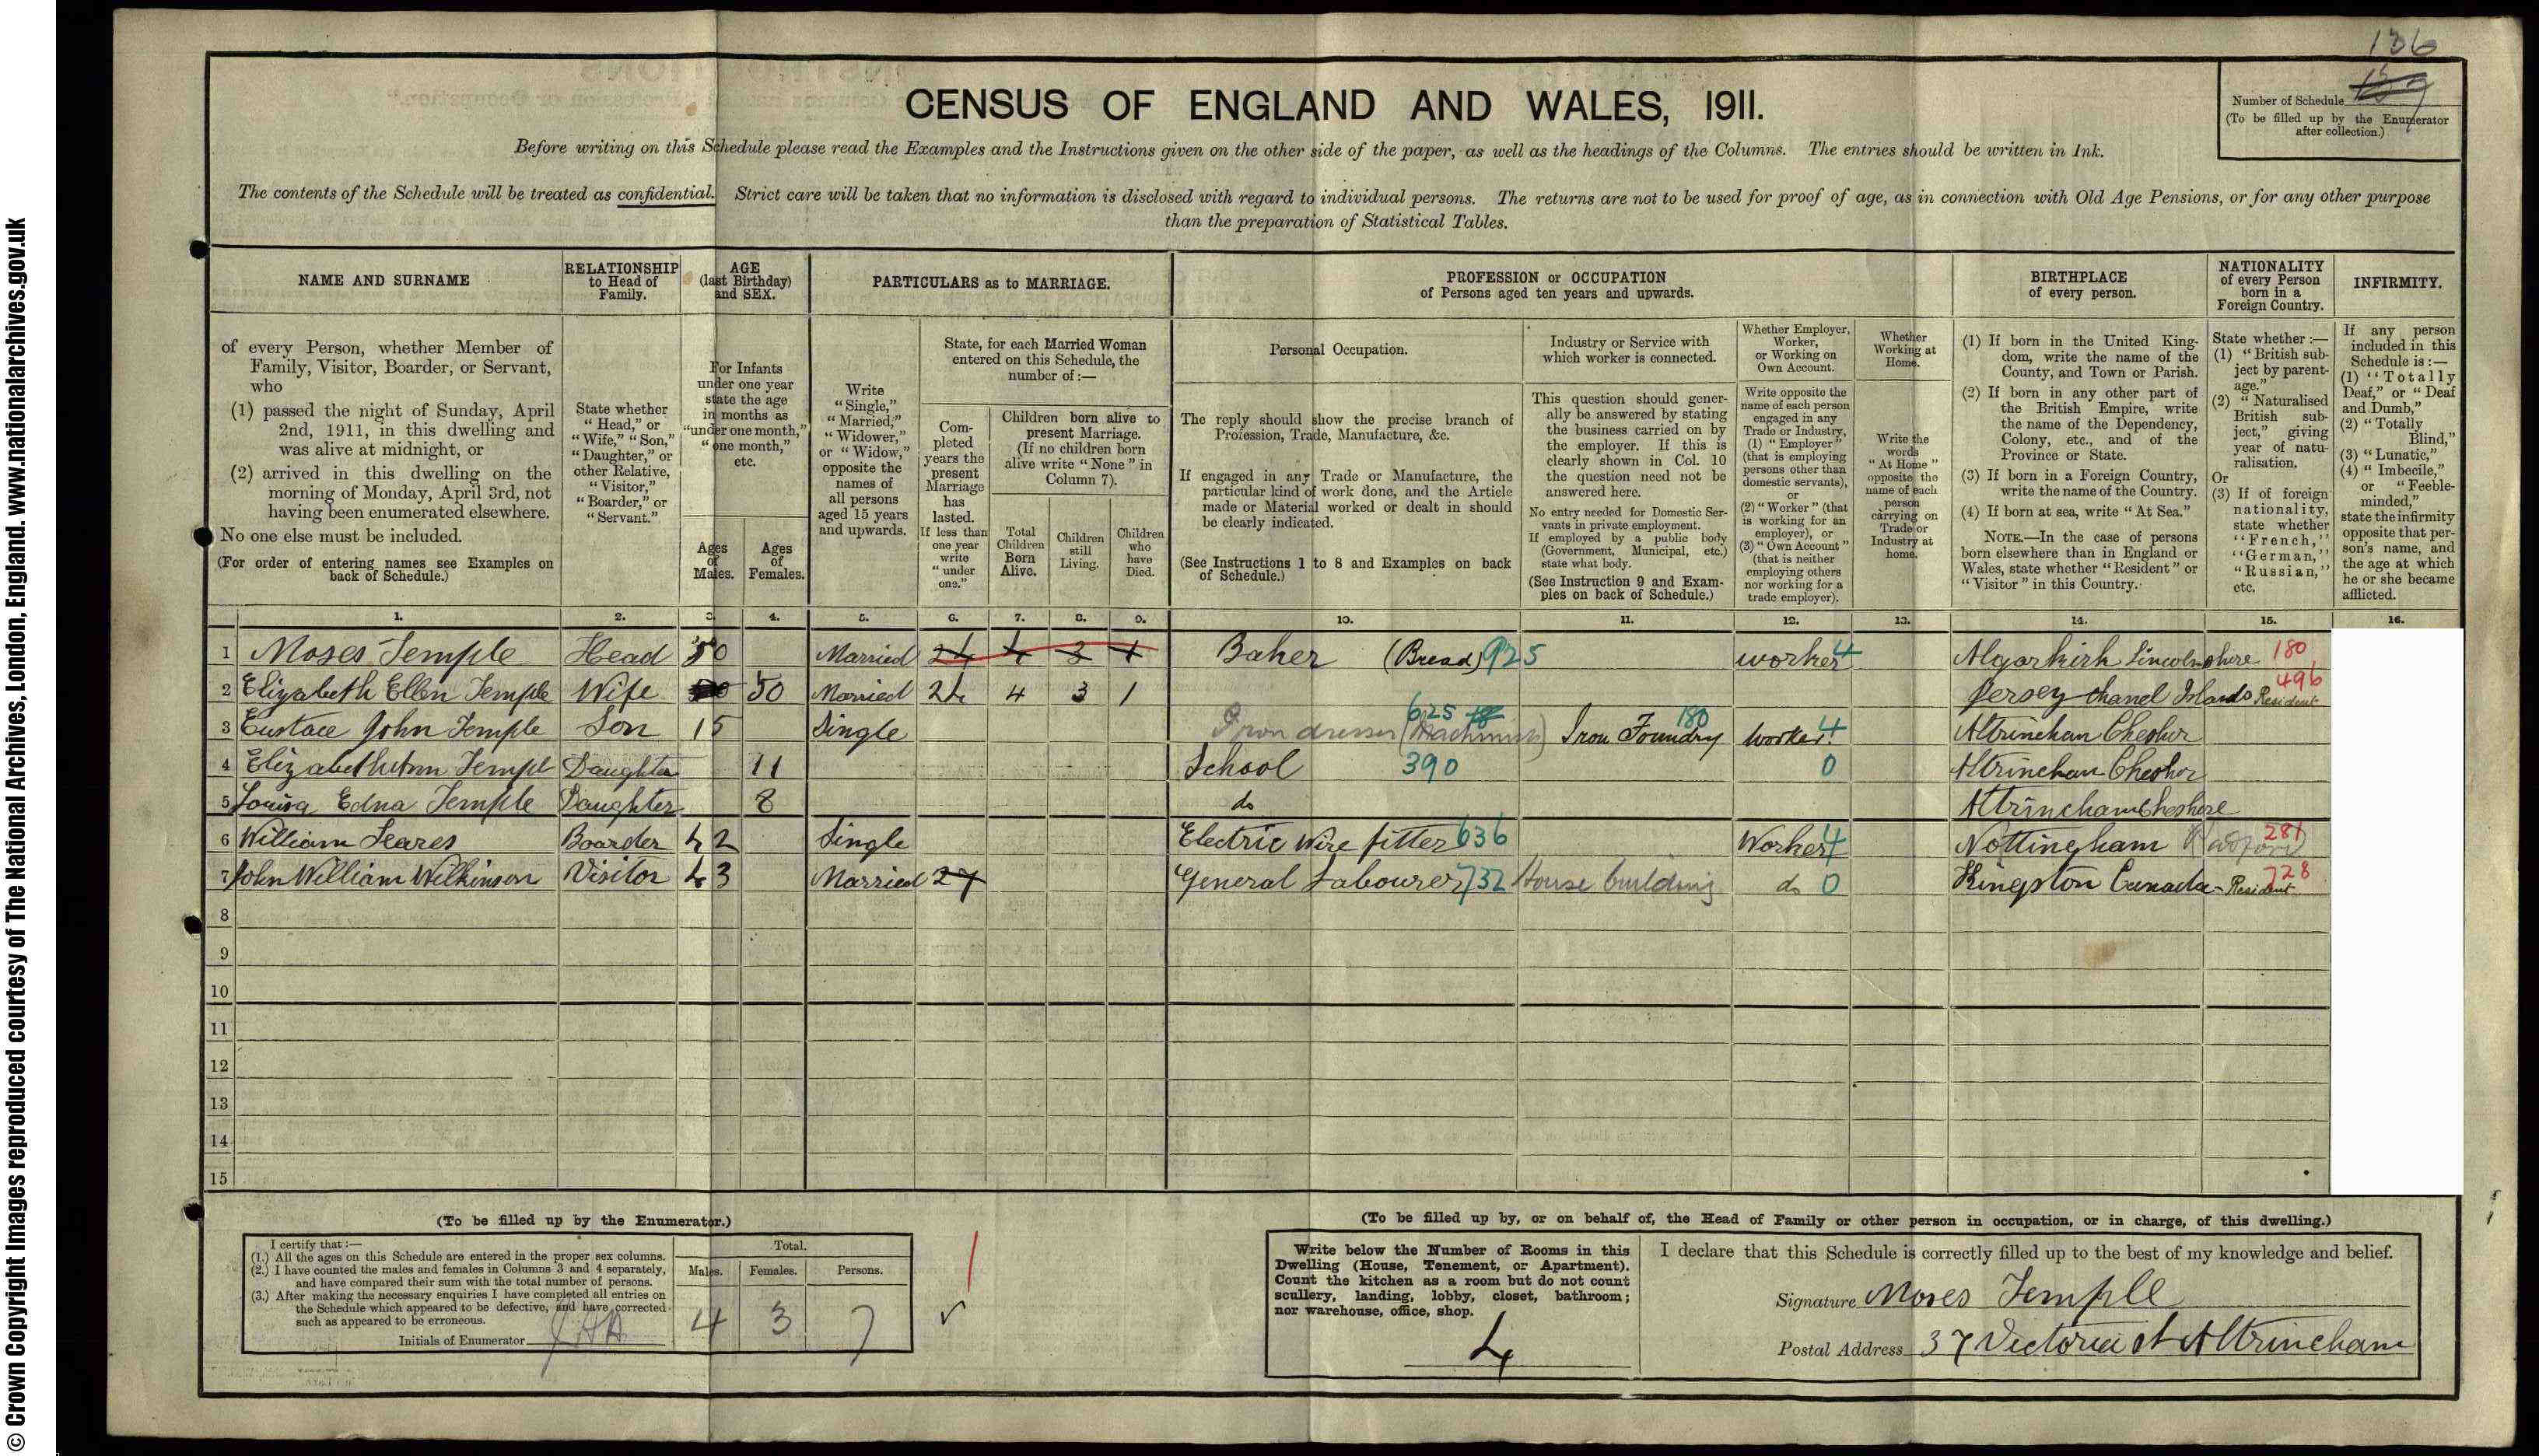 136
CENSUS OF ENGLAND AND WALES, 1911.
Number of Schedule
(To be filled up by the Enumerator
after collection.)
Before writing on this Schedule please read the Examples and the Instructions given on the other side of the paper, as well as the headings of the Columns. The entries should be written in Ink.
The contents of the Schedule will be treated as confidential. Strict care will be taken that no information is disclosed with regard to individual persons. The returns are not to be used for proof of age, as in connection with Old Age Pensions, or for any other purpose
than the preparation of Statistical Tables.
NAME AND SURNAME
of every Person, whether Member of
Family, Visitor, Boarder, or Servant,
who
(1) passed the night of Sunday, April
2nd, 1911, in this dwelling and
was alive at midnight, or
(2) arrived in this dwelling on the
morning of Monday, April 3rd, not
having been enumerated elsewhere.
No one else must be included.
(For order of entering names see Examples on
back of Schedule.)
RELATIONSHIP
to Head of
Family.
State whether
"Head," or
"Wife," "Son,"
"Daughter," or
other Relative,
"Visitor,"
"Boarder," or
"Servant."
AGE
(last Birthday)
and SEX.
For Infants
under one year
state the age
in months as
"under one month,"
"one month,"
etc.
Ages
of
Males.
Ages
of
Females.
PARTICULARS as to MARRIAGE.
Write
"Single,"
"Married,"
"Widower,"
or "Widow,"
opposite the
names of
all persons
aged 15 years
and upwards.
State, for each Married Woman
entered on this Schedule, the
number of :—
Com-
pleted
years the
present
Marriage
has
lasted.
If less than
one year
write
"under
one."
Children born alive to
present Marriage.
(If no children born
alive write "None" in
Column 7).
Total
Children
Born
Alive.
Children
still
Living.
Children
who
have
Died.
PROFESSION or OCCUPATION
of Persons aged ten years and upwards.
Personal Occupation.
The reply should show the precise branch of
Profession, Trade, Manufacture, &c.
If engaged in any Trade or Manufacture, the
particular kind of work done, and the Article
made or Material worked or dealt in should
be clearly indicated.
(See Instructions 1 to 8 and Examples on back
of Schedule.)
Industry or Service with
which worker is connected.
This question should gener-
ally be answered by stating
the business carried on by
the employer. If this is
clearly shown in Col. 10
the question need not be
answered here.
No entry needed for Domestic Ser-
vants in private employment.
If employed by a public body
(Government, Municipal, etc.)
state what body.
(See Instruction 9 and Exam-
ples on back of Schedule.)
Whether Employer,
Worker,
or Working on
Own Account.
Write opposite the
name of each person
engaged in any
Trade or Industry,
(1) "Employer"
(that is employing
persons other than
domestic servants),
or
(2) "Worker" (that
is working for an
employer), or
(3) "Own Account"
(that is neither
employing others
nor working for a
trade employer).
Whether
Working at
Home.
Write the
words
"At Home"
opposite the
name of each
person
carrying on
Trade or
Industry at
home.
BIRTHPLACE
of every person.
(1) If born in the United King-
dom, write the name of the
County, and Town or Parish.
(2) If born in any other part of
the British Empire, write
the name of the Dependency,
Colony, etc., and of the
Province or State.
(3) If born in a Foreign Country,
write the name of the Country.
(4) If born at sea, write "At Sea."
NOTE.—In the case of persons
born elsewhere than in England or
Wales, state whether "Resident" or
"Visitor" in this Country.
NATIONALITY
of every Person
born in a
Foreign Country.
State whether :—
(1) "British sub-
ject by parent-
age."
(2) "Naturalised
British sub-
ject," giving
year of natu-
ralisation.
Or
(3) If of foreign
nationality,
state whether
"French,"
"German,"
"Russian,"
etc.
INFIRMITY.
If any person
included in this
Schedule is :—
(1) "Totally
Deaf," or "Deaf
and Dumb,"
(2) "Totally
Blind,"
(3) "Lunatic,"
(4) "Imbecile,"
or "Feeble-
minded,"
state the infirmity
opposite that per-
son's name, and
the age at which
he or she became
afflicted.
1. 2. 3. 4. 5. 6. 7. 8. 9. 10. 11. 12. 13. 14. 15. 16.
1 Moses Temple Head 50 Married 24 4 3 1 Baker (Bread) 925 worker 4 Algarkirk Lincolnshire 180
2 Elizabeth Ellen Temple Wife 50 Married 24 4 3 1 Jersey Chanel Islands Resident 496
3 Eustace John Temple Son 15 Single Iron dresser (Machinist) 625 Iron Foundry 180 worker 4 Altrincham Cheshir
4 Elizabeth Ann Templ Daughter 11 School 390 0 Altrincham Cheshir
5 Louisa Edna Temple Daughter 8 do Altrincham Cheshire
6 William Seares Boarder 42 Single Electric Wire fitter 636 Worker 4 Nottingham 281
7 John William Wilkinson Visitor 43 Married 27 General Labourer 732 House building do 0 Kingston Canada - Resident 728
8
9
10
11
12
13
14
15
(To be filled up by the Enumerator.)
I certify that :—
(1.) All the ages on this Schedule are entered in the proper sex columns.
(2.) I have counted the males and females in Columns 3 and 4 separately,
and have compared their sum with the total number of persons.
(3.) After making the necessary enquiries I have completed all entries on
the Schedule which appeared to be defective, and have corrected
such as appeared to be erroneous.
Initials of Enumerator
Total.
Males. Females. Persons.
4 3 7
(To be filled up by, or on behalf of, the Head of Family or other person in occupation, or in charge, of this dwelling.)
Write below the Number of Rooms in this
Dwelling (House, Tenement, or Apartment).
Count the kitchen as a room but do not count
scullery, landing, lobby, closet, bathroom;
nor warehouse, office, shop.
4
I declare that this Schedule is correctly filled up to the best of my knowledge and belief.
Signature Moses Temple
Postal Address 37 Victoria St Altrincham
© Crown Copyright Images reproduced courtesy of The National Archives, London, England. www.nationalarchives.gov.uk